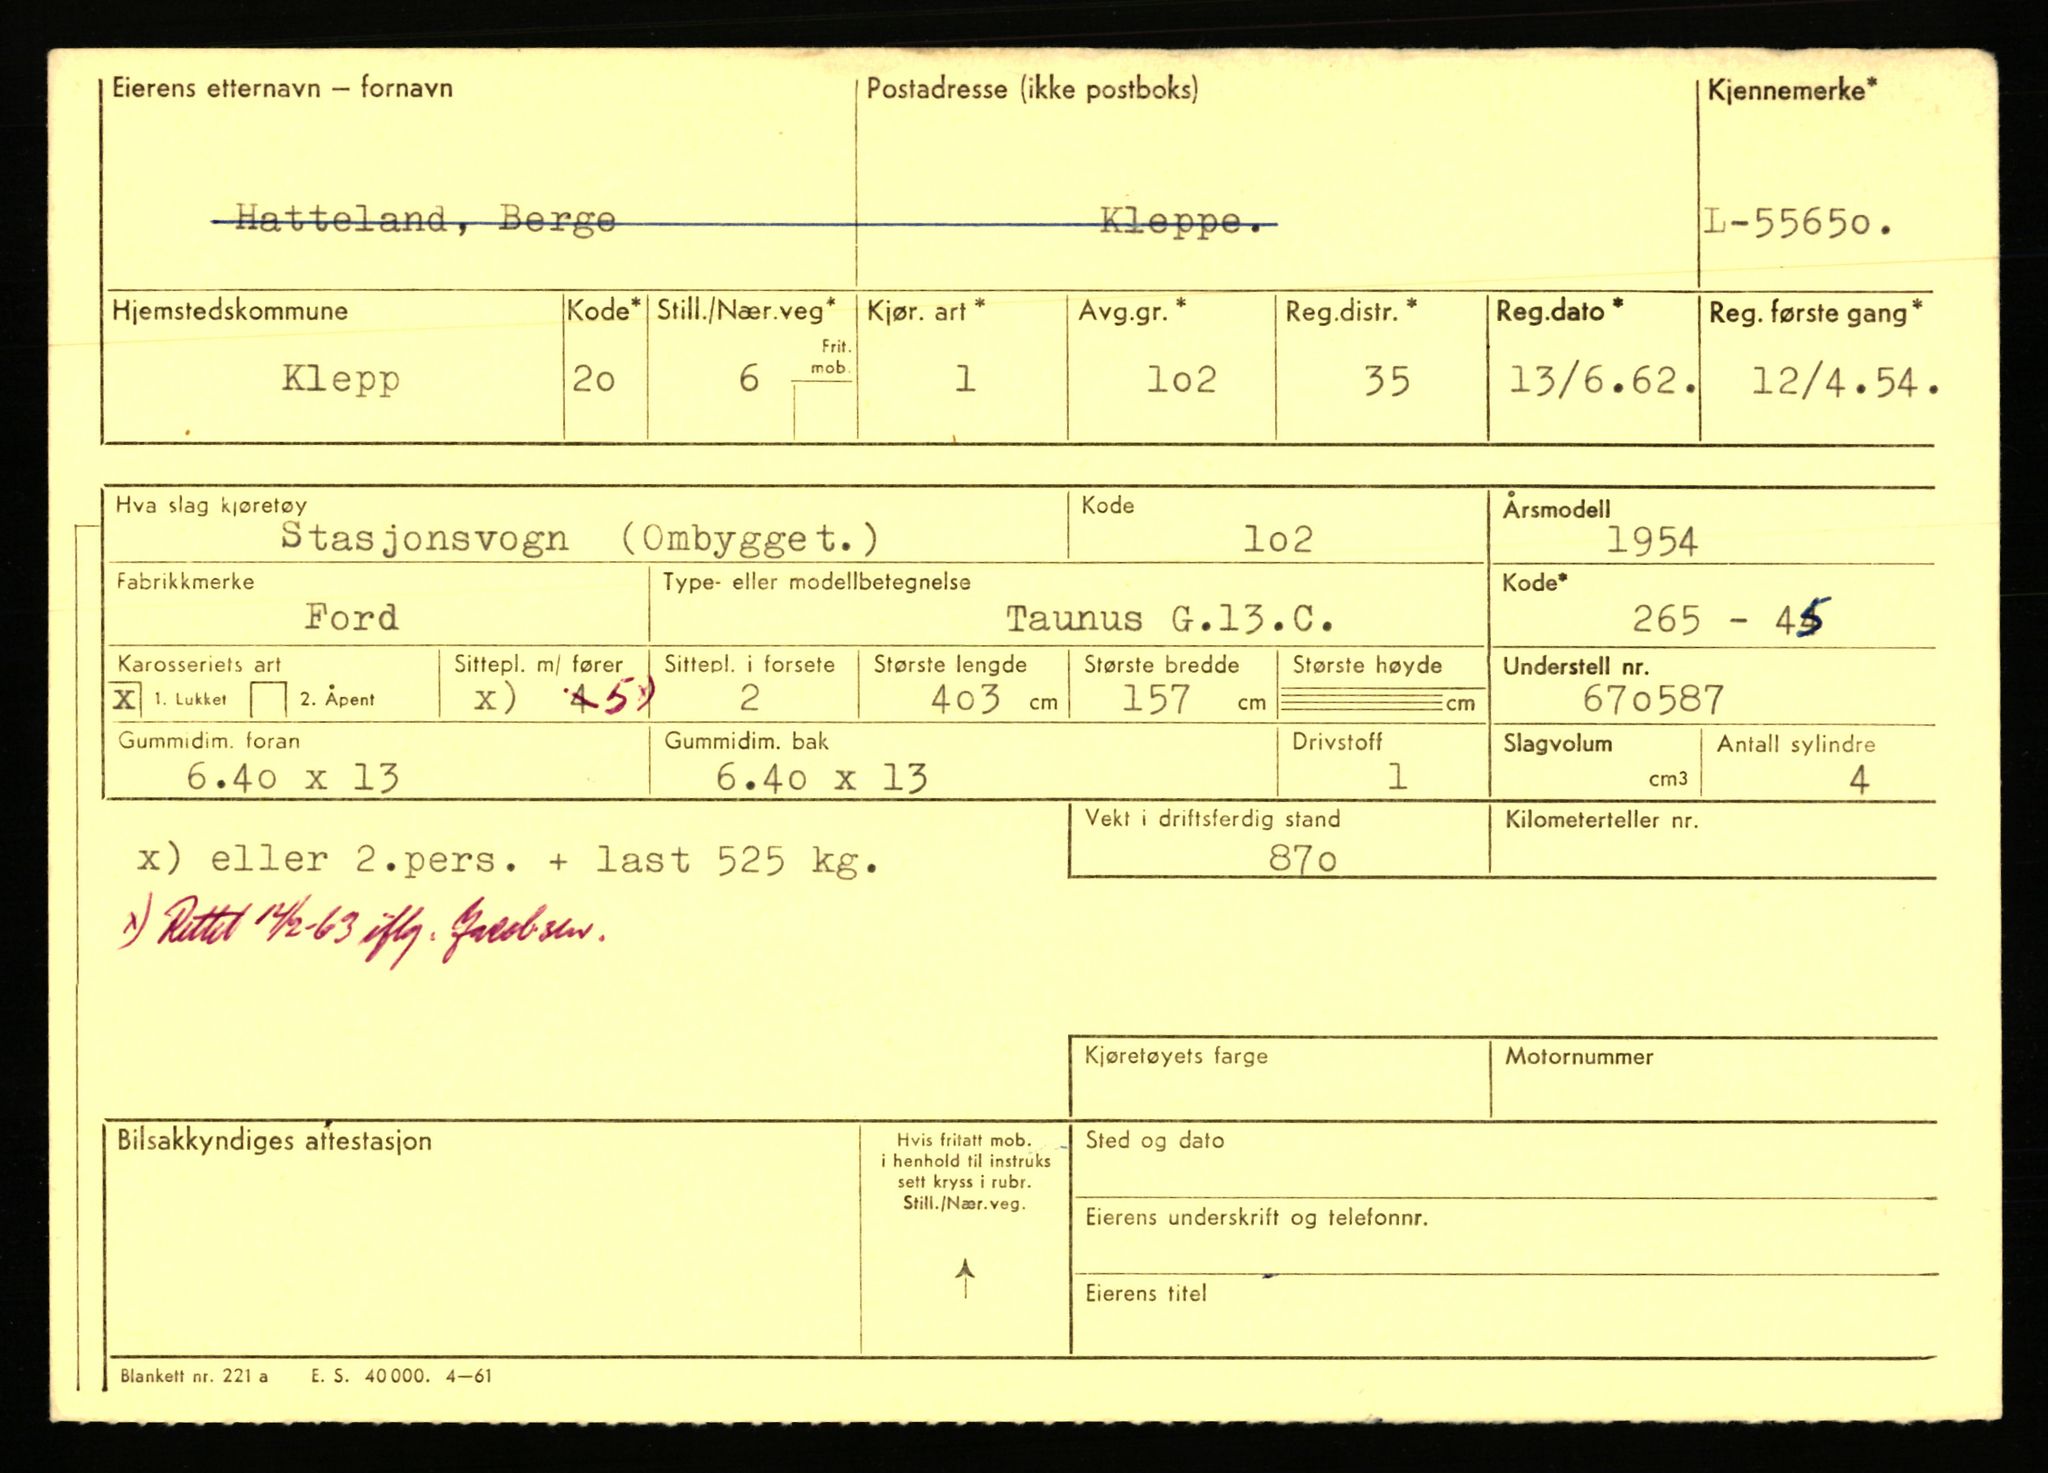 Eierens etternavn – fornavn Postadresse (ikke postboks) Kjennemerke*
Hatteland, Berge Kleppe. L-55650.
Hjemstedskommune Kode* Still./Nær.veg* Kjør. art* Avg.gr.* Reg.distr.* Reg.dato* Reg. første gang*
Frit.
mob.
Klepp 2o 6 1 1o2 35 13/6.62. 12/4.54.
Hva slag kjøretøy Kode Årsmodell
Stasjonsvogn (Ombygget.) 1o2 1954
Fabrikkmerke Type- eller modellbetegnelse Kode*
Ford Taunus G.13.C. 265 - 45
Karosseriets art Sittepl. m/ fører Sittepl. i forsete Største lengde Største bredde Største høyde Understell nr.
X 1. Lukket 2. Åpent x) 4 5 x) 2 4o3 cm 157 cm cm 67o587
Gummidim. foran Gummidim. bak Drivstoff Slagvolum Antall sylindre
6.4o x 13 6.4o x 13 1 cm3 4
Vekt i driftsferdig stand Kilometerteller nr.
x) eller 2.pers. + last 525 kg. 87o
x) Rettet 14/2-63 iflg. Jacobsen.
Kjøretøyets farge Motornummer
Bilsakkyndiges attestasjon Hvis fritatt mob. Sted og dato
i henhold til instruks
sett kryss i rubr.
Still./Nær.veg.
Eierens underskrift og telefonnr.
Eierens titel
Blankett nr. 221 a E. S. 40 000. 4—61